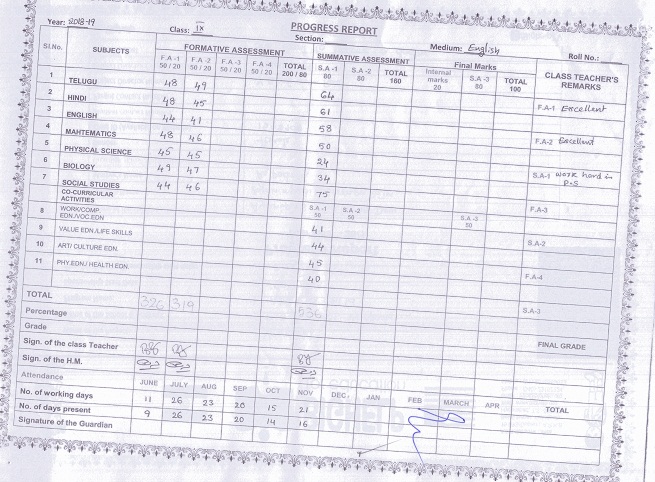 PROGRESS REPORT
Year: 2018-19 Class: IX Section: Medium: English Roll No.:
Sl.No. SUBJECTS FORMATIVE ASSESSMENT SUMMATIVE ASSESSMENT Final Marks CLASS TEACHER'S REMARKS
F.A -1 50 / 20 F.A -2 50 / 20 F.A -3 50 / 20 F.A -4 50 / 20 TOTAL 200 / 80 S.A -1 80 S.A -2 80 TOTAL 180 Internal marks 20 S.A -3 80 TOTAL 100
1 TELUGU 48 49 64 F.A-1 Excellent
2 HINDI 48 45 61
3 ENGLISH 44 41 58 F.A-2 Excellent
4 MAHTEMATICS 48 46 50
5 PHYSICAL SCIENCE 45 45 24 S.A-1 work hard in P.S
6 BIOLOGY 49 47 34
7 SOCIAL STUDIES 44 46 75 F.A-3
CO-CURRICULAR ACTIVITIES S.A -1 50 S.A -2 50 S.A -3 50
8 WORK/COMP. EDN./VOC.EDN 41 S.A-2
9 VALUE EDN./LIFE SKILLS 44
10 ART/ CULTURE EDN. 45 F.A-4
11 PHY.EDN./ HEALTH EDN. 40
TOTAL 326 319 536 S.A-3
Percentage
Grade FINAL GRADE
Sign. of the class Teacher
Sign. of the H.M.
Attendance JUNE JULY AUG SEP OCT NOV DEC. JAN FEB MARCH APR TOTAL
No. of working days 11 26 23 20 15 21
No. of days present 9 26 23 20 14 16
Signature of the Guardian